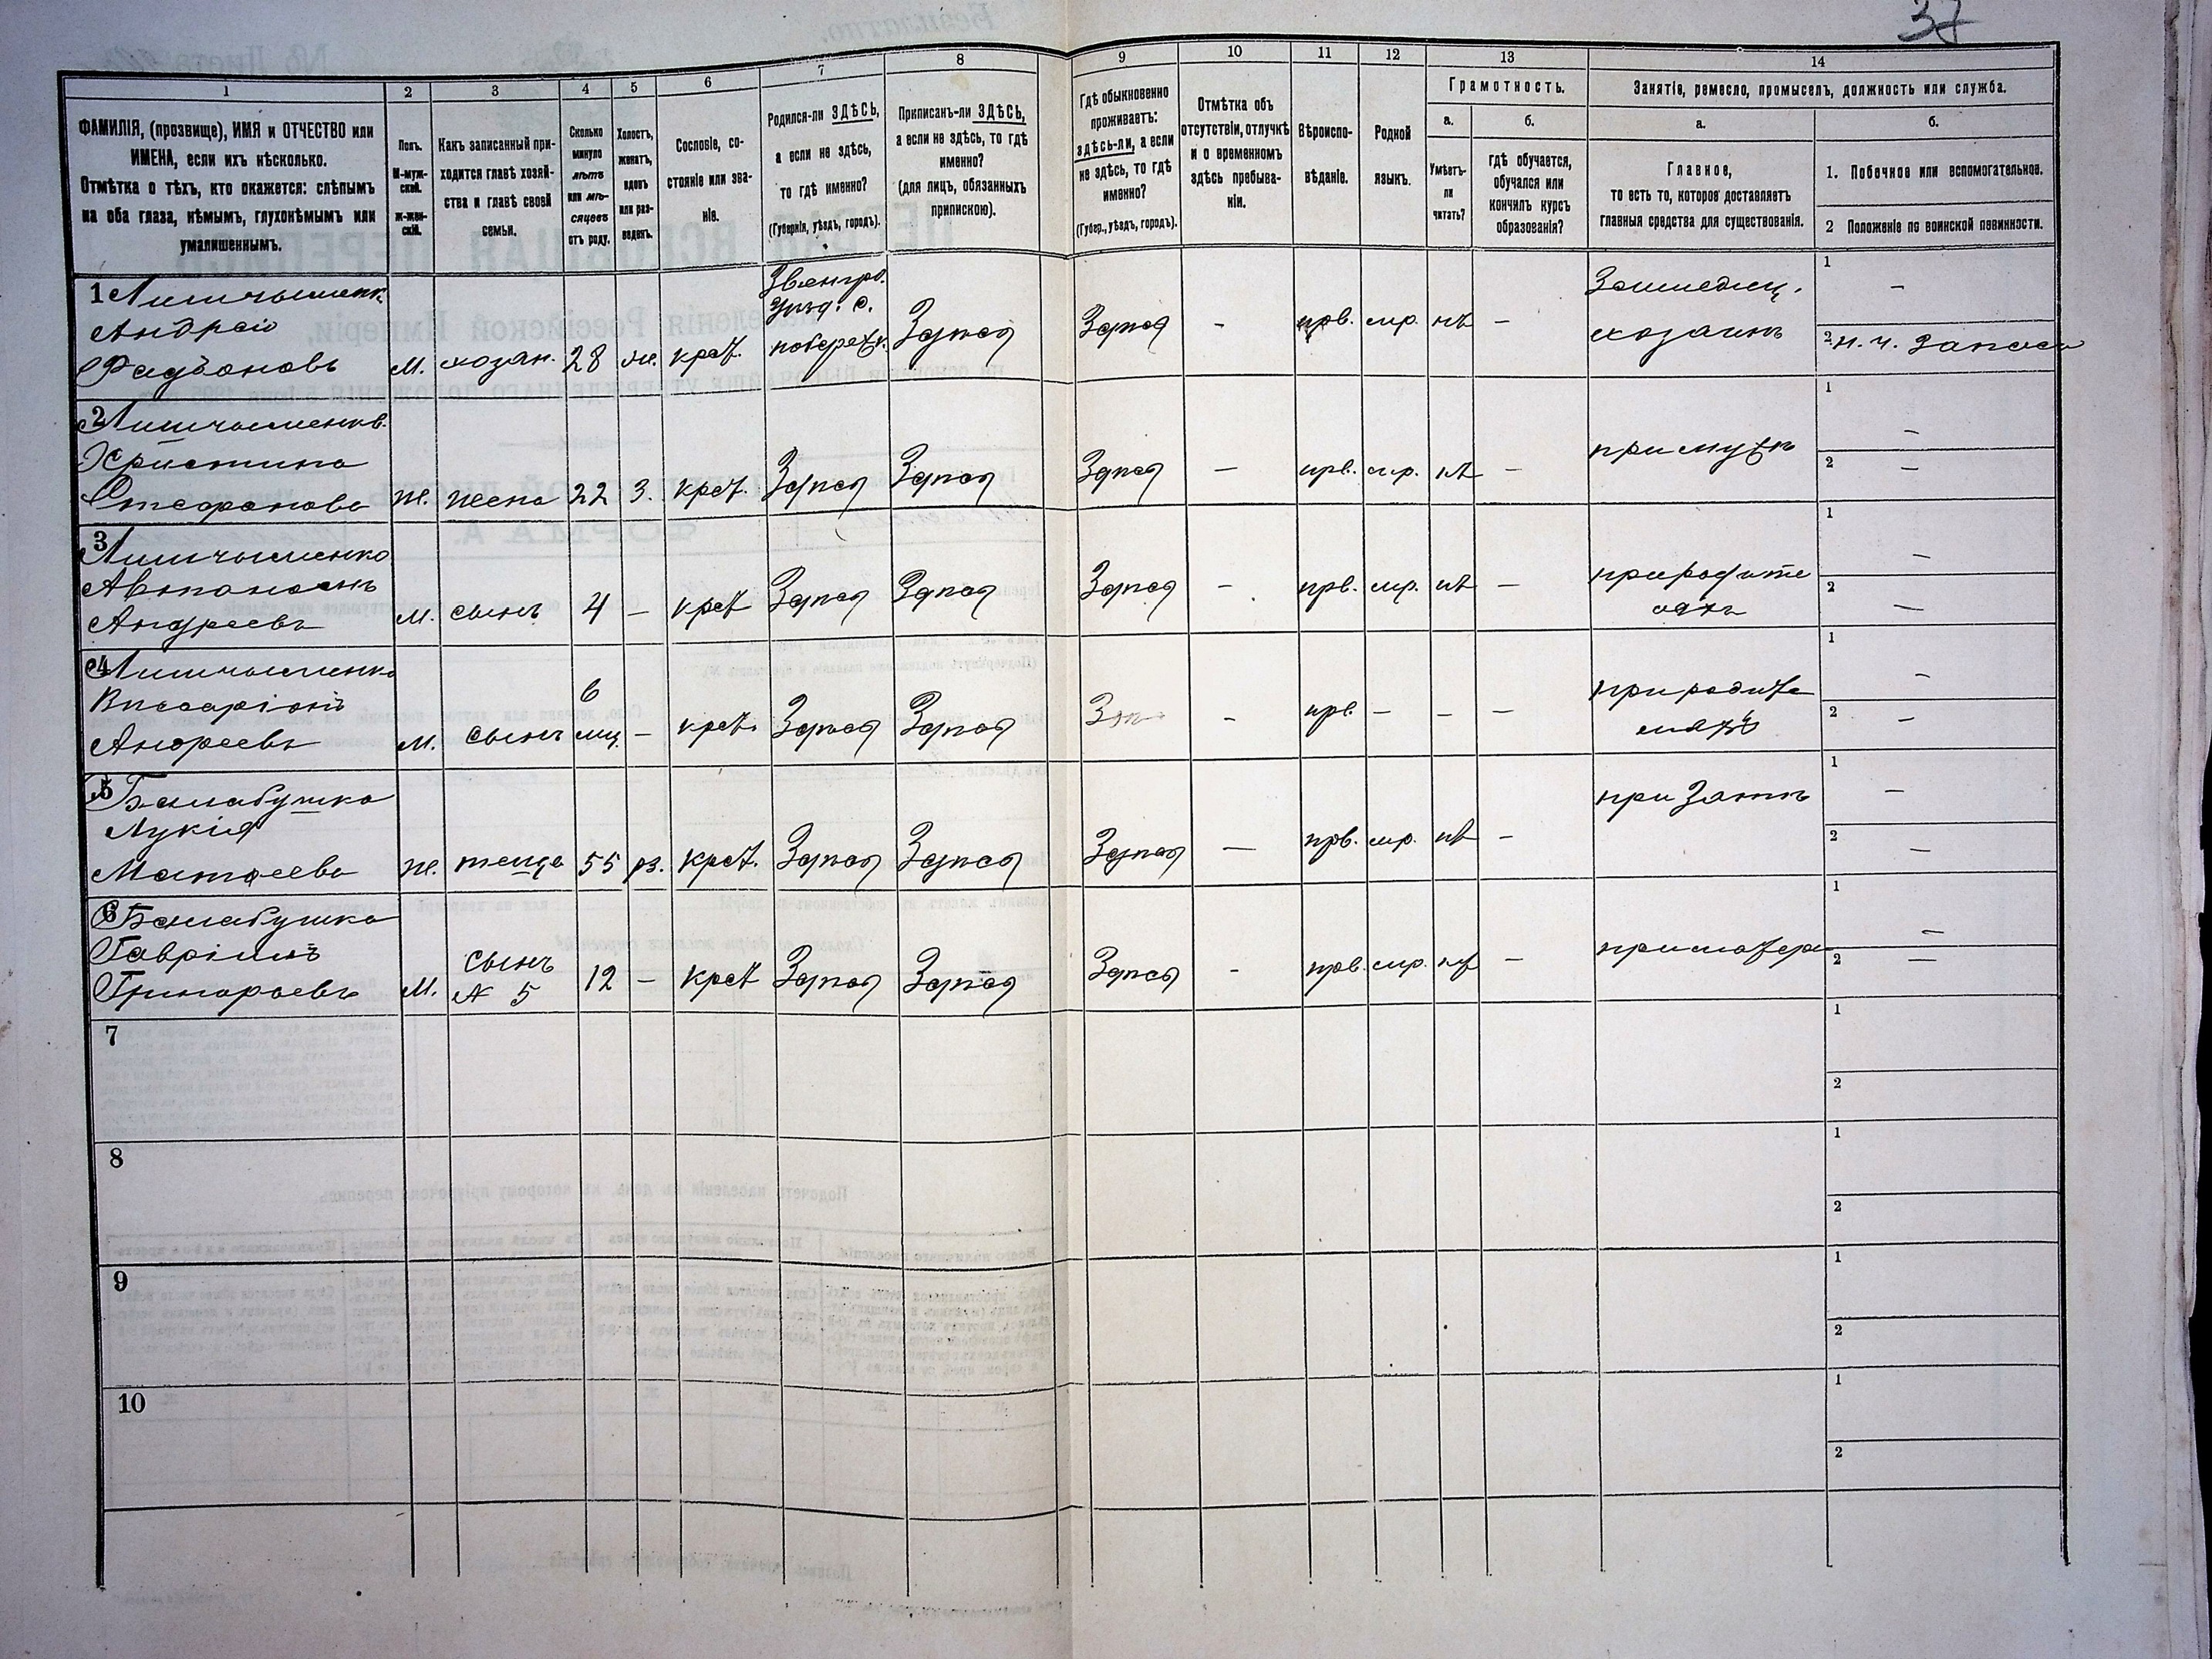 37
1
ФАМИЛІЯ, (прозвище), ИМЯ и ОТЧЕСТВО или
ИМЕНА, если ихъ нѣсколько.
Отмѣтка о тѣхъ, кто окажется: слѣпымъ
на оба глаза, нѣмымъ, глухонѣмымъ или
умалишеннымъ.
2
Полъ.
М-муж-
ской.
Ж-жен-
скій.
3
Какъ записанный при-
ходится главѣ хозяй-
ства и главѣ своей
семьи.
4
Сколько
минуло
лѣтъ
или мѣ-
сяцевъ
отъ роду.
5
Холостъ,
женатъ,
вдовъ
или раз-
веденъ.
6
Сословіе, со-
стояніе или зва-
ніе.
7
Родился-ли ЗДѢСЬ,
а если не здѣсь,
то гдѣ именно?
(Губернія, уѣздъ, городъ).
8
Приписанъ-ли ЗДѢСЬ,
а если не здѣсь, то гдѣ
именно?
(для лицъ, обязанныхъ
припискою).
9
Гдѣ обыкновенно
проживаетъ:
здѣсь-ли, а если
не здѣсь, то гдѣ
именно?
(Губер., уѣздъ, городъ).
10
Отмѣтка объ
отсутствіи, отлучкѣ
и о временномъ
здѣсь пребыва-
ніи.
11
Вѣроиспо-
вѣданіе.
12
Родной
языкъ.
13
Грамотность.
а.
Умѣетъ-
ли
читать?
б.
гдѣ обучается,
обучался или
кончилъ курсъ
образованія?
14
Занятіе, ремесло, промыселъ, должность или служба.
а.
Главное,
то есть то, которое доставляетъ
главныя средства для существованія.
б.
1. Побочное или вспомогательное.
2 Положеніе по воинской повинности.
1
Андрей
М. хозяи. 28 ж. крест.
Звенигр.
уѣзд. с.
Здѣсь
Здѣсь - прв. мр. нѣ -
хозяинъ
1 -
2 н. ч. запаса
2
Христина
Стефанова ж. жена 22 з. крест. Здѣсь Здѣсь
Здѣсь - прв. мр. нѣ - при мужѣ
1 -
2 -
3
Андреевъ М. сынъ 4 - крест Здѣсь Здѣсь
Здѣсь - прв. мр. нѣ -
при родите
ляхъ
1 -
2 -
4
Виссаріонъ
Андреевъ М. сынъ
6
мц. - крест. Здѣсь Здѣсь
- прв. - - -
при родите
ляхъ
1 -
2 -
5 Балабушка
Лукія
Матфеева ж. теща 55 крест. Здѣсь Здѣсь
Здѣсь - прв. мр. нѣ - при зятѣ
1 -
2 -
6 Балабушка
Гавріилъ
Григорьевъ М.
сынъ
№ 5
12 - крест Здѣсь Здѣсь
Здѣсь - прв. мр. нѣ - при матери
1 -
2 -
7
1
2
8
1
2
9
1
2
10
1
2